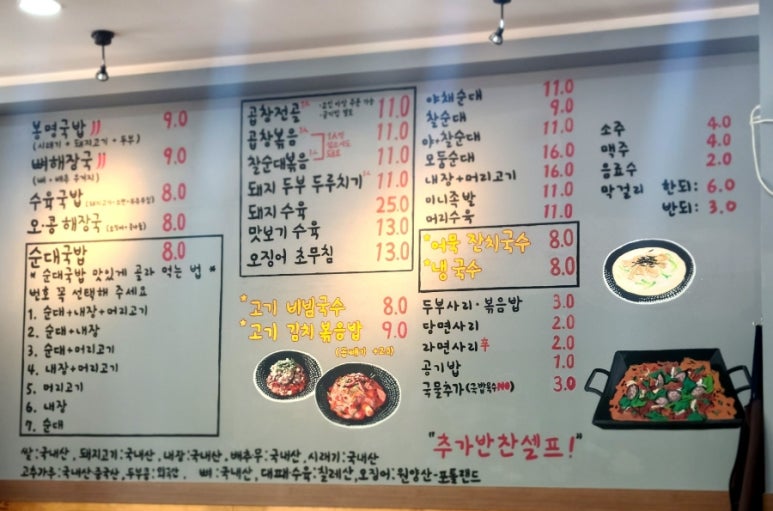 봉명국밥 9.0
(시래기+돼지고기+두부)
뼈해장국 9.0
(뼈+배추 우거지)
수육국밥 8.0
오·콩해장국 8.0
순대국밥 8.0
* 순대국밥 맛있게 골라 먹는 법 *
번호 꼭 선택해 주세요
1. 순대+내장+머리고기
2. 순대+내장
3. 순대+머리고기
4. 내장+머리고기
5. 머리고기
6. 내장
7. 순대
곱창전골 11.0
곱창볶음 11.0
찰순대볶음 11.0
돼지 두부 두루치기 11.0
돼지 수육 25.0
맛보기 수육 13.0
오징어 초무침 13.0
*고기 비빔국수 8.0
*고기 김치볶음밥 9.0
야채순대 11.0
찰순대 9.0
야·찰순대 11.0
모둠순대 16.0
내장+머리고기 16.0
미니족발 11.0
머리수육 11.0
*어묵 잔치국수 8.0
*냉국수 8.0
두부사리·볶음밥 3.0
당면사리 2.0
라면사리 2.0
공기밥 1.0
국물추가(국밥육수) 3.0
소주 4.0
맥주 4.0
음료수 2.0
막걸리 한되: 6.0
반되: 3.0
"추가반찬셀프!"
쌀:국내산, 돼지고기:국내산, 내장:국내산, 배추무:국내산, 시래기:국내산
고추가루:국내산·중국산, 두부콩:외국산, 뼈:국내산, 대패·수육:칠레산, 오징어:원양산·포틀랜드